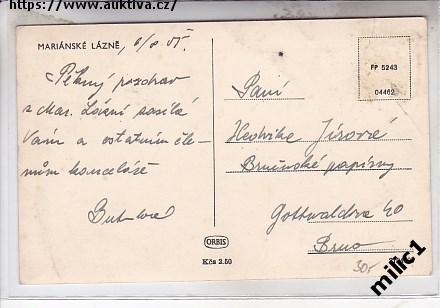 https://www.auktiva.cz/
MARIÁNSKÉ LÁZNĚ, 6/8 55.
Pěkný pozdrav
z Mar. Lázní zasílá
Vám a ostatním čle-
nům kanceláře
FP 5243
04462
Paní
Hedvika Jírové
Brněnské papírny
Gottwaldova 40
Brno
30,-
ORBIS
Kčs 2.50
milic1